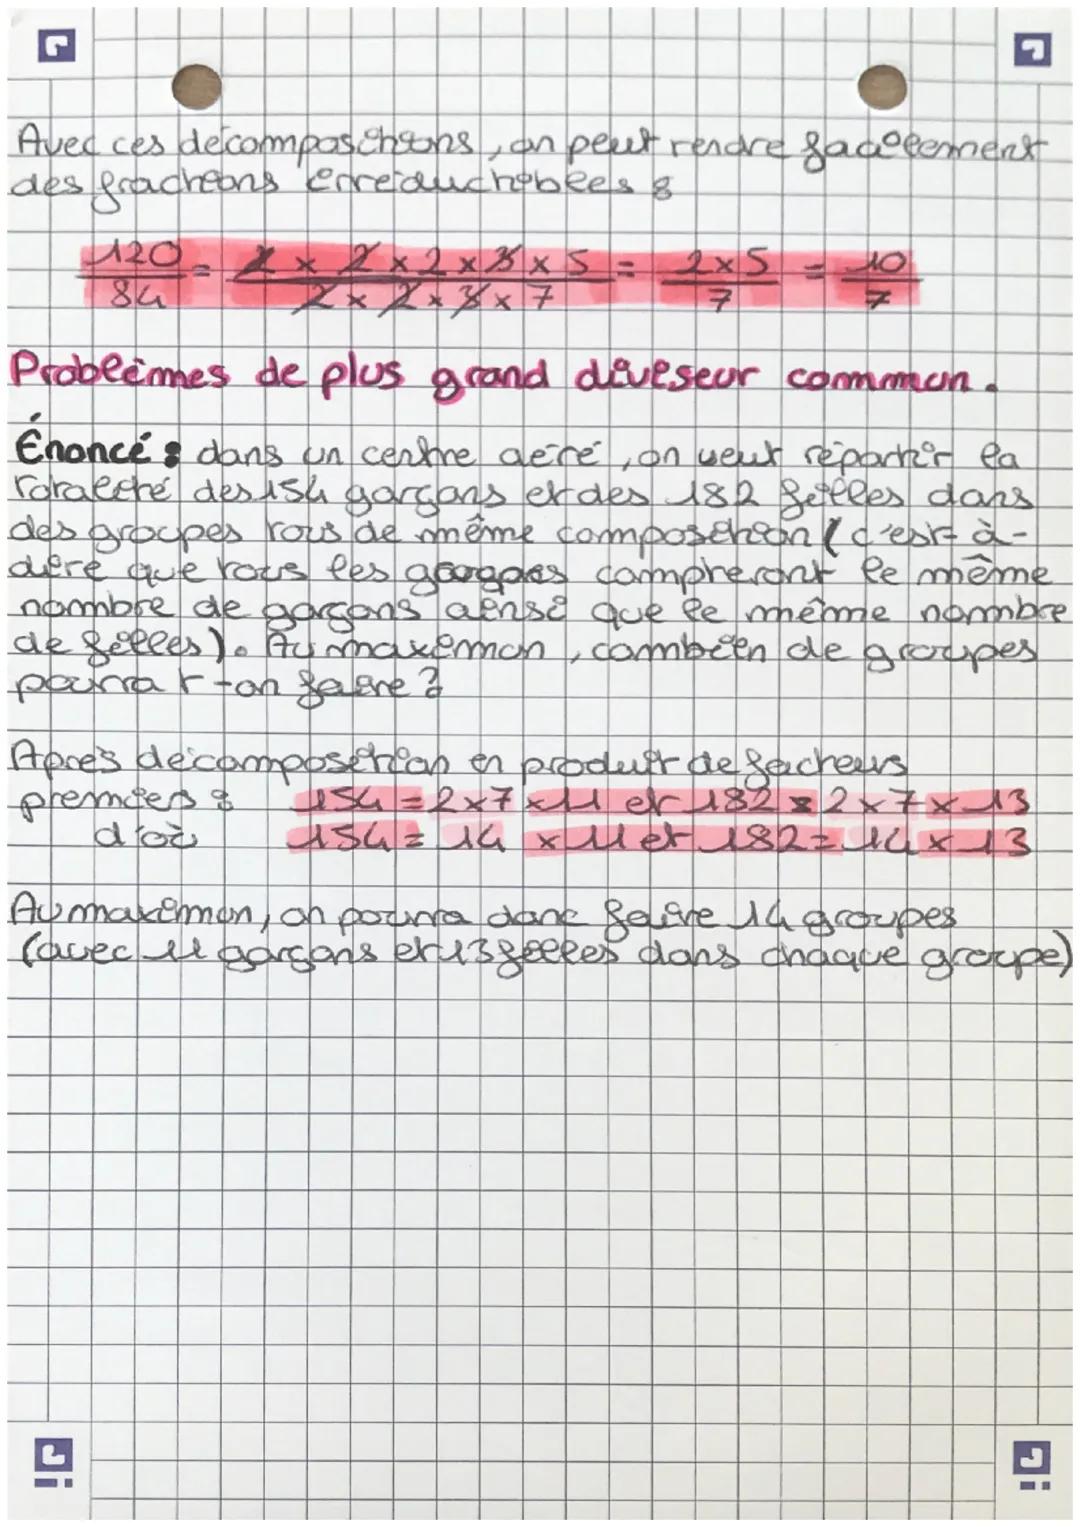 Avec ces décompositions, on peut rendre facilement
des fractions irréductibles :
120/84 = 2 x 2 x 2 x 3 x 5 / 2 x 2 x 3 x 7 = 2x5/7 = 10/7
Problèmes de plus grand diviseur commun.
Énoncé : dans un centre aéré, on veut répartir la
totalité des 154 garçons et des 182 filles dans
des groupes tous de même composition (c'est-à-
dire que tous les groupes compteront le même
nombre de garçons ainsi que le même nombre
de filles). Au maximum, combien de groupes
pourra t-on faire ?
Après décomposition en produit de facteurs
premiers : 154 = 2x7 x11 et 182 = 2x7x13
d'où 154 = 14 x 11 et 182 = 14 x 13
Au maximum, on pourra donc faire 14 groupes
(avec 11 garçons et 13 filles dans chaque groupe)